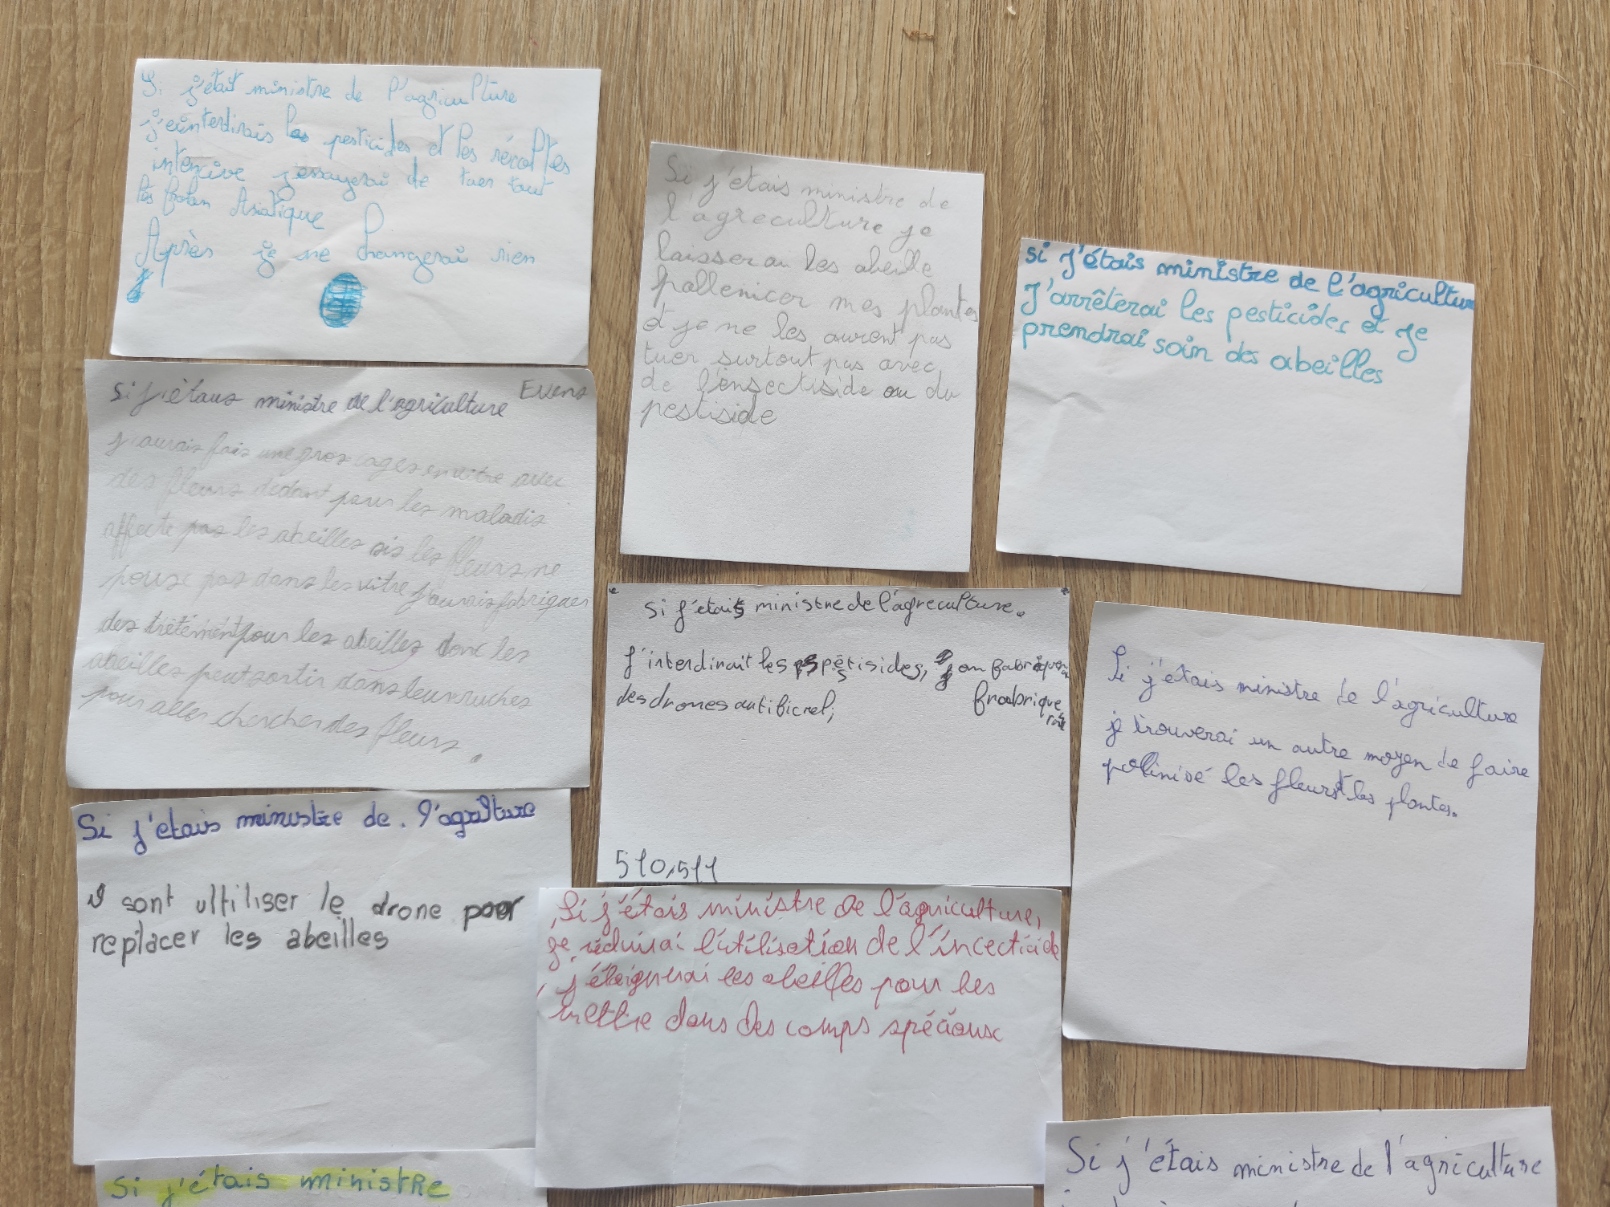 Si j'était ministre de l'agriculture
j'einterdirais les pesticides et les récoltes
intencive j'essayerai de tuer tout
les frolon Asiatique
Après je ne changerai rien
Si j'étais ministre de
l'agreculture je
laisserai les abeille
pallenicer mes plantes
et je ne les aurent pas
tuer surtout pas avec
de l'ensectiside ou du
pestiside
si j'étais ministre de l'agriculture
J'arrêterai les pesticides et je
prendrai soin des abeilles
Evens
Si j'étaus ministre de l'agriculture
j'aurais fais une gros cages en vitre avec
des fleurs dedant pour les maladis
affecte pas les abeilles sis les fleurs ne
pouse pas dans les vitre j'aurais fabriquer
des trètement pour les abeilles donc les
abeilles peut sortir dans leur ruches
pour aller chercher des fleurs.
si j'étais ministre de l'agreculture.
j'interdirait les pétisides,
des drones autificrel;
510,511
Si j'étais ministre de l'agriculture
je trouverai un autre moyen de faire
polinisé les fleurs les plantes.
Si j'étais ministre de. l'agriture
il sont ultiliser le drone poor
replacer les abeilles
Si j'étais ministre de l'agriculture,
je réduirai l'utilisation de l'incecticide
j'éloignerai les abeilles pour les
mettre dans des comps spéciaux
Si j'étais ministre
Si j'étais ministre de l'agriculture